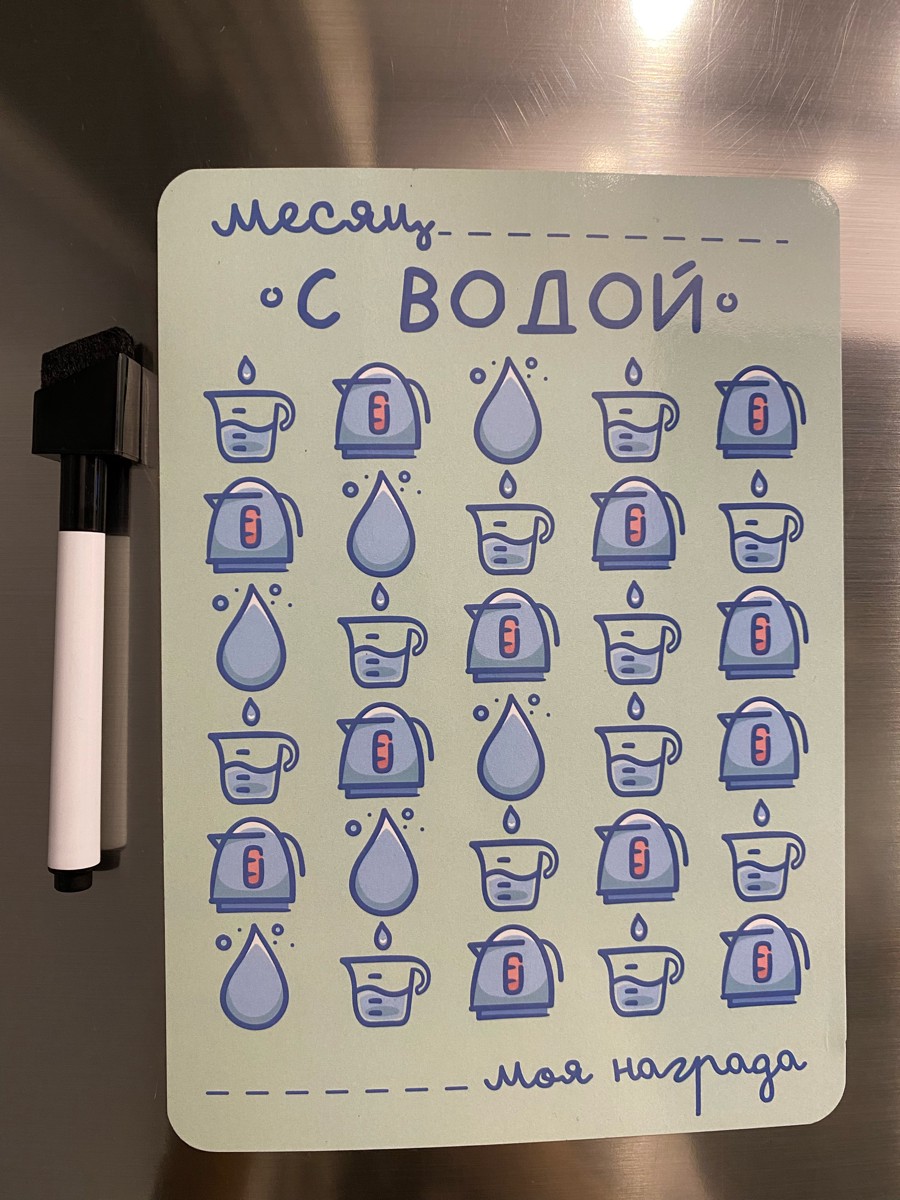 месяц
с водой
моя награда